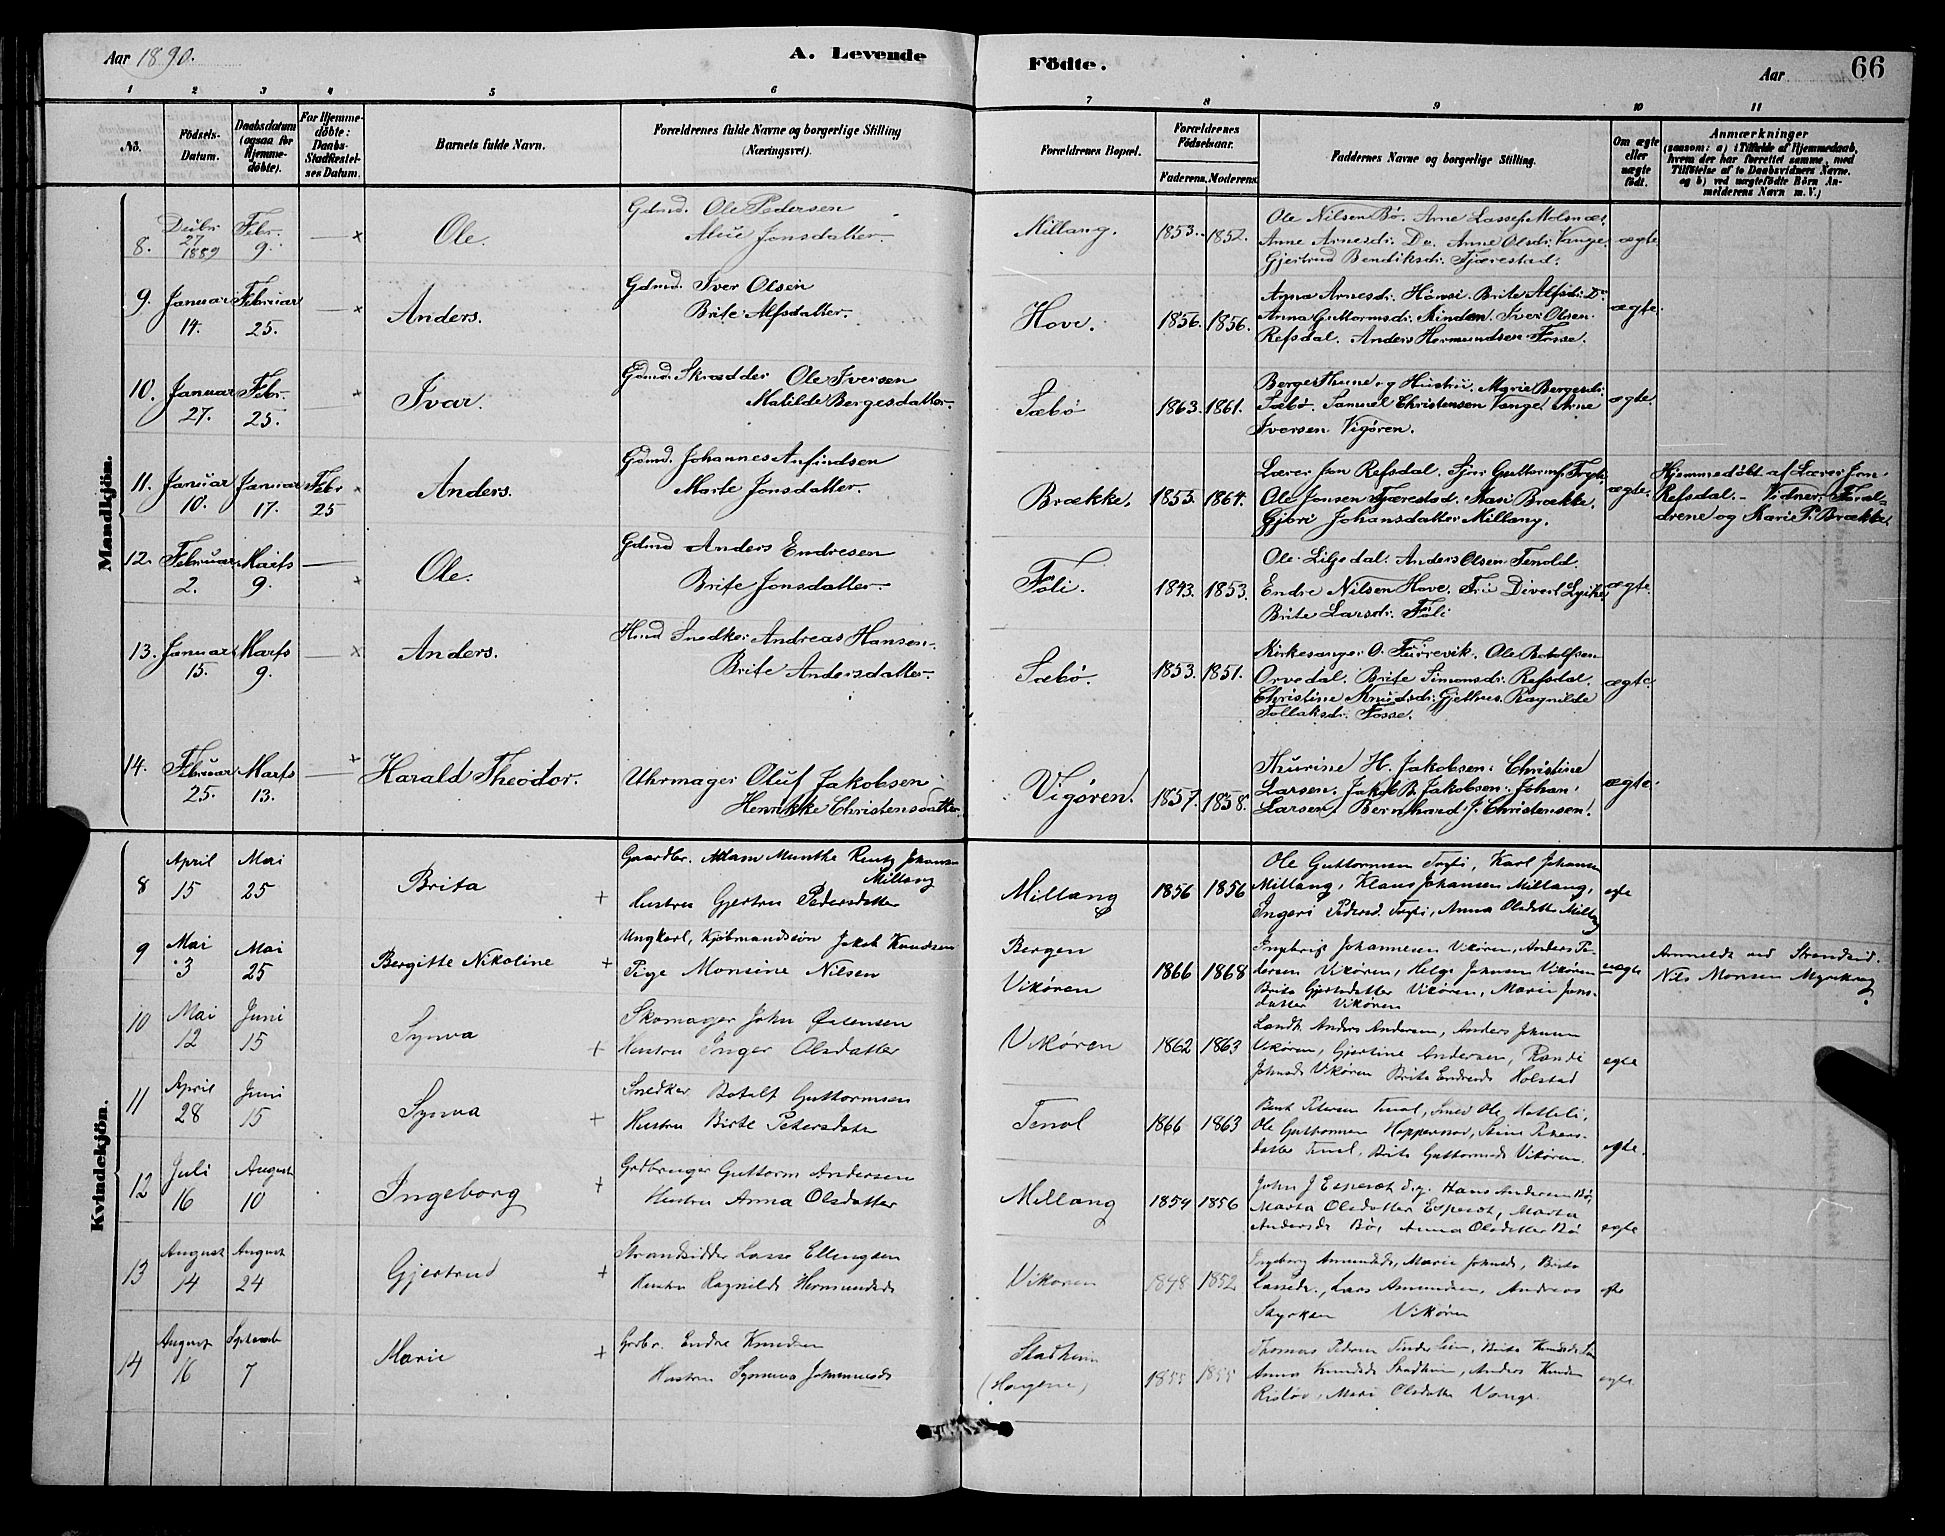 Aar 1890.
A. Levende
Födte.
Aar
66
1 2 3 4 5 6 7 8 9 10 11
No.
Födsels-
Datum.
Daabsdatum
(ogsaa for
Hjemme-
döbte).
For Hjemme-
döbte:
Daabs-
Stadfæstel-
ses Datum.
Barnets fulde Navn.
Forældrenes fulde Navne og borgerlige Stilling
(Næringsvei).
Forældrenes Bopæl.
Forældrenes
Födselsaar.
Faderens. Moderens.
Faddernes Navne og borgerlige Stilling.
Om ægte
eller
uægte
födt.
Anmærkninger
(saasom: a) i Tilfælde af Hjemmedaab,
hvem der har forrettet samme, med
Tilföielse af to Daabsvidners Navne,
og b) ved uægtefödte Börn An-
melderens Navn m. V.)
Mandkjön.
8.
Decbr
27
1889
Febr.
9.
Ole.
Gdmd. Ole Pedersen
Jonsdatter.
Millang.
1853. 1852.
Ole Nilsen Bø. Arne Lasses. Molsnæs
Anne Arnesdr. Do. Anne Olsdr. Vange
Gjertrud Bendiksdr. Tjærestad.
ægte
9.
Januar
14.
Februar
25.
Anders.
Gdmd. Iver Olsen
Brite Alfsdatter.
Hove.
1856. 1856.
Anna Arnesdr. Hønsi. Brite Alfsdr. Do.
Anna Guttormsdr. Rinden. Iver Olsen
Refsdal. Anders Hermundsen Fosse.
ægte.
10.
Januar
27.
Febr.
25.
Ivar.
Gdmd. Skrædder Ole Iversen
Matilde Bergesdatter.
Sæbø
1863. 1861.
Berge Thune og Hustru. Marie Bergesdr.
Sæbø. Samuel Christensen Vange. Arne
Iversen Vigøren.
ægte.
11.
Januar
10.
Januar
17.
Febr
25
Anders.
Gdmd. Johannes Anfindsen
Marte Jonsdatter.
Brække.
1853. 1864.
Lærer Jon Refsdal. Sjur Guttorms. Tryti.
Ole Jonsen Tjærestad. Kari Brække.
Gjøri Johansdatter Millang.
ægte.
Hjemmedøbt af Lærer Jon
Refsdal. - Vidner: Foræl-
drene og Marie P. Brække.
12.
Februar
2.
Marts
9.
Ole.
Gdmd Anders Endresen
Brite Jonsdatter.
Føli.
1843. 1853.
Ole Liljedal. Anders Olsen Tenold.
Endre Nilsen Hove. Divert
Brite Larsdr. Føli
ægte.
13.
Januar
15.
Marts
9.
Anders.
Hmd Snedker Andreas Hansen.
Brite Andersdatter.
Sæbø.
1853. 1851.
Kirkesanger O. Turrevik. Ole Botolfsen
Orvedal. Brite Simonsdr. Refsdal.
Christine Knudsdr. Gjelhus. Ragnilde
Tollaksdr. Fosse.
ægte.
14.
Februar
25.
Marts
13.
Harald Theodor.
Uhrmager Oluf Jakobsen
Henrikke Christensdatter.
Vigøren.
1857. 1858.
Thurine H. Jakobsen. Christine
Larsen. Jakob Jakobsen. Johan
Larsen. Bernhard J. Christensen.
ægte.
Kvindekjön.
8
April
15
Mai
25
Brita
Gaardbr. Adam Munthe Rentz Johansen
Millang
Hustru Gjertru Pedersdatter
Millang
1856 1856
Ole Guttormsen Tryti, Karl Johansen
Millang, Klaus Johansen Millang,
Ingeri Pedersd. Tryti, Anna Olsdatter Millang
egte
9
Mai
3
Mai
25
Bergitte Nikoline
Ungkarl, Kjøbmandssøn Jakob Knudsen
Pige Monsine Nilsen
Bergen
Vikøren
1866 1868
Ingebrigt Johannesen Vikøren, Anders Pe-
dersen Vikøren, Helge Johnsen Vikøren
Brita Gjertsdatter Vikøren, Marie Jens-
datter Vikøren
uegte
Anmeldt ved Strandsid.
Nils Monsen
10
Mai
12
Juni
15
Synva
Skomager John Østensen
Hustru Inger Olsdatter
Vikøren
1862 1863
Landh. Anders Andersen, Anders Johnsen
Vikøren, Gjertine Andersen, Randi
Johnsd. Vikøren Brita Endresd. Holstad
egte
11
April
28
Juni
15
Synva
Snedker Botolf Guttormsen
Hustru Birte Petersdatter
Tenol
1866 1863
Bent Petersen Tenol, Smed Ole Hatteli,
Ole Guttormsen Hopperstad, Stine Peters-
datter Tenol, Brita Guttormsd. Vikøren
egte.
12
Juli
16
August
10
Ingeborg
Grdbruger Guttorm Andersen
Hustru Anna Olsdatter
Millang
1859 1856
John J Esperet d.y. Hans Andersen Bø,
Marta Olsdatter Esperet, Marta
Andersd. Bø, Anna Olsdatter Bø
egte
13
August
14
August
24
Gjertrud
Strandsidder Lasse Ellingsen
Hustru Ragnild Hermundsd.
Vikøren
1848 1852
Ingeborg Amundsd., Marie Johnsd., Brita
Lassed., Lars Amundsen, Andreas
Styrksen Vikøren
egte
14
August
16
September
7
Marie
Grdbr. Endre Knudsen
Hustru Synneva Johannesd.
Stadheim
(Haugene)
1855 1855
Thomas Pedersen Finderlien, Brita Knudsd.
Anna Knudsd. Stadheim, Anders Knudsen
Risløv, Mari Olsdatter Vange.
egte